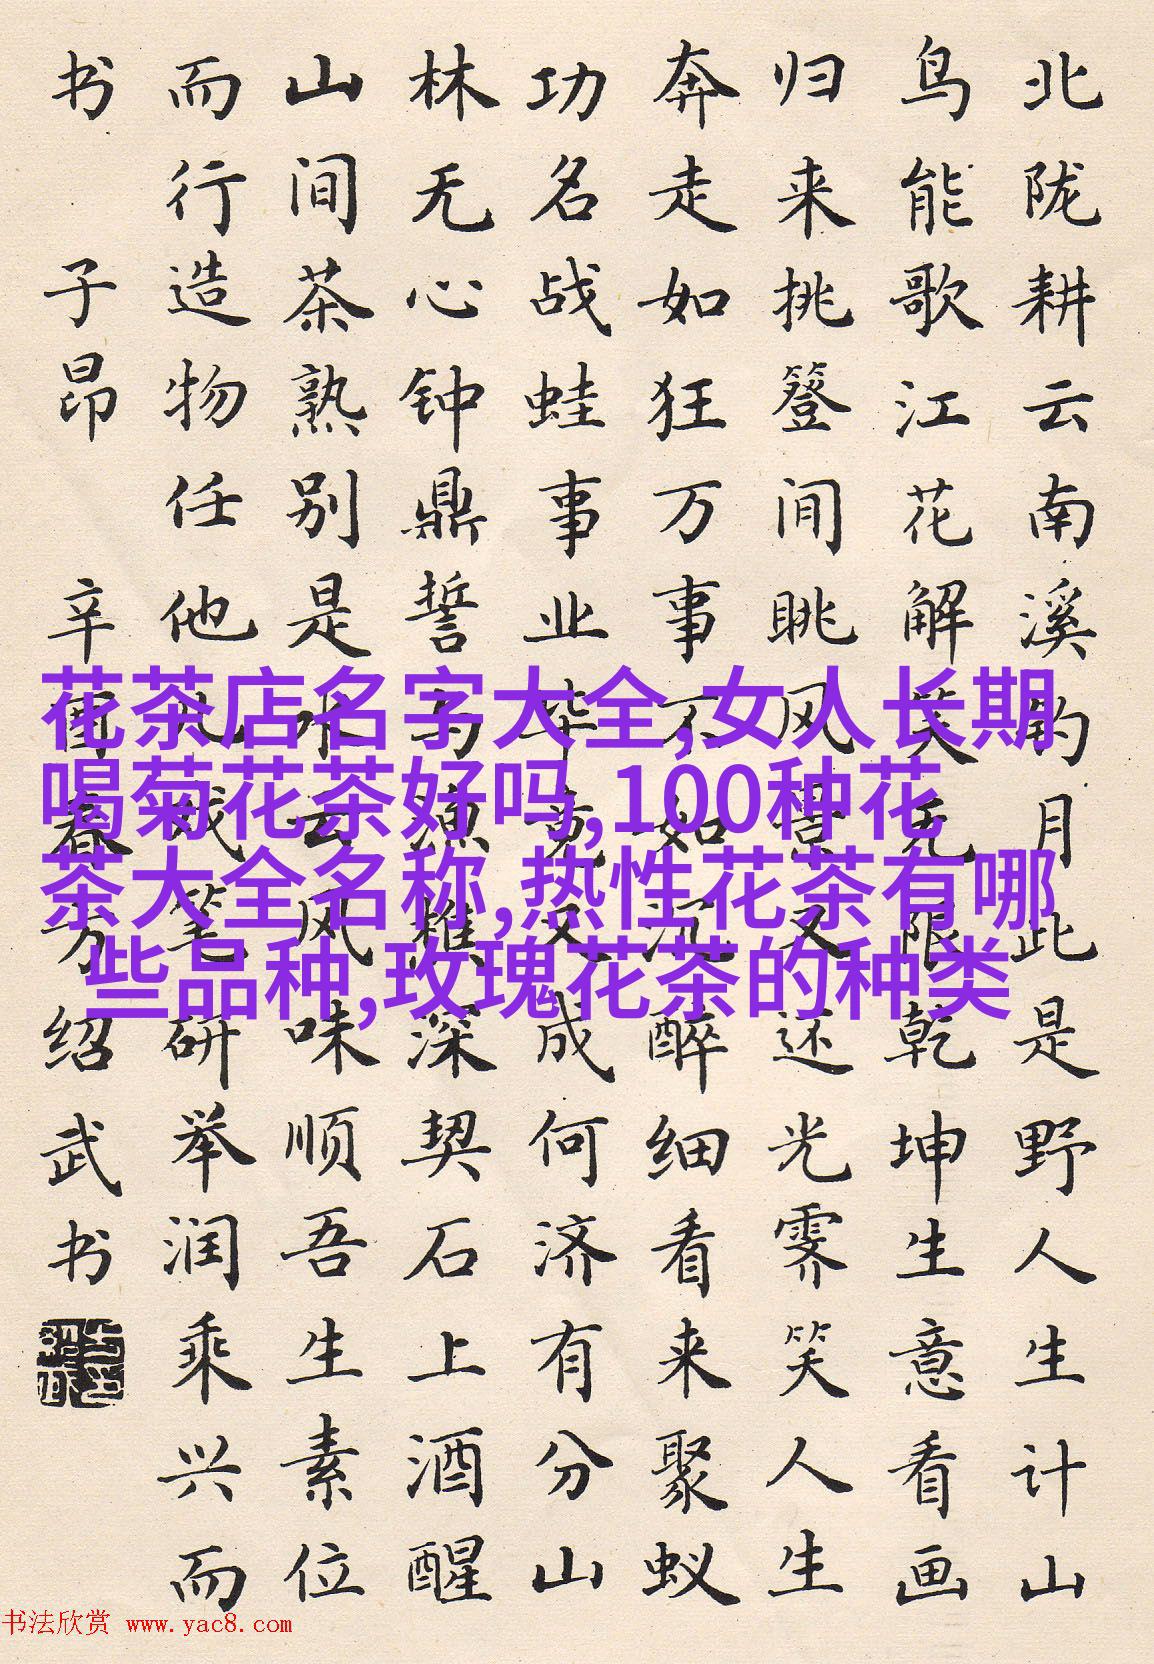 北陇耕云南溪钓月此是野人生计山
鸟能歌江花解笑无限乾坤生意看画
归来挑簦间眺风雩又还光霁笑人生
奔走如狂万事不如沉醉细看来聚蚁
功名战蛙事业毕竟又成何济有分山
林无心钟鼎誓与渔樵深契石上酒醒
山间茶熟别是水云风味顺吾生素位
而行造物任他儿戏笔研举润乘兴而
书 子昂 辛酉春方绍武书
花茶店名字大全,女人长期
喝菊花茶好吗,100种花
茶大全名称,热性花茶有哪
些品种,玫瑰花茶的种类
书法欣赏 www.yac8.com